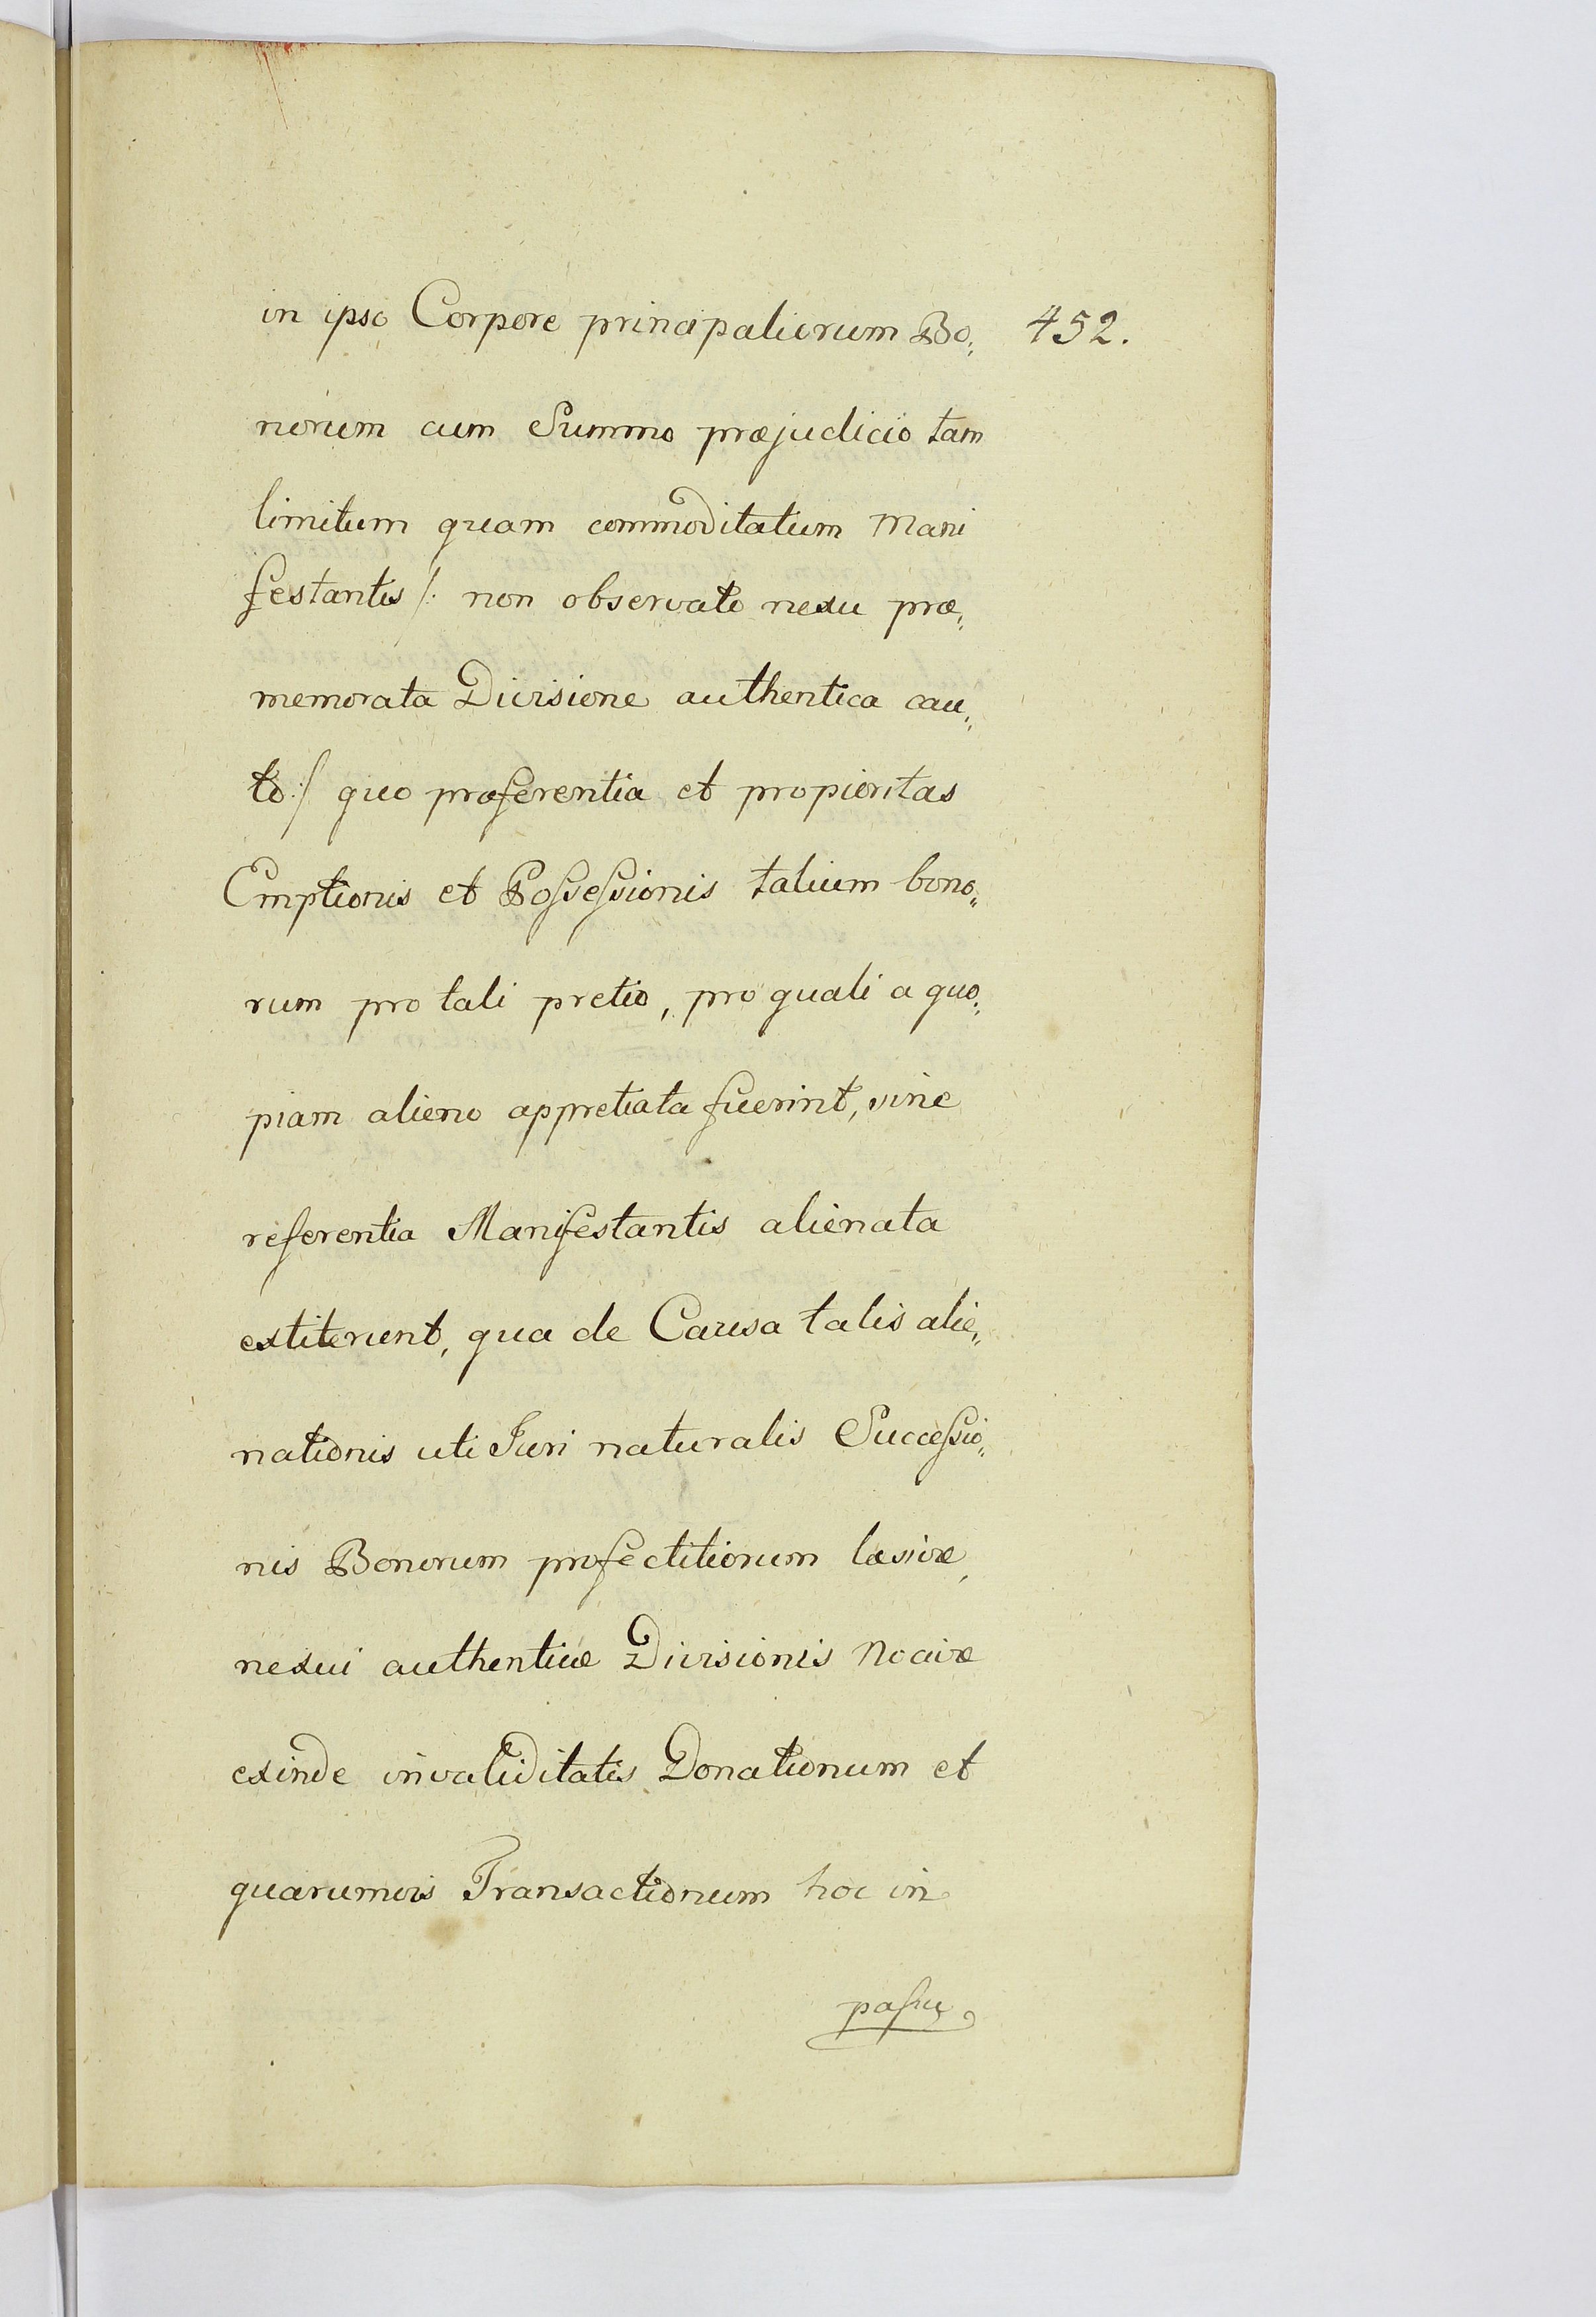 in ipso Corpore principaliorum Bo„
452.
norum cum Summo præjudicio tam
limitum quam commoditatum Mani
festantis /: non observato nexu præ„
memorata Divisione authentica cau„
to :/ quo præferentia et propioritas
Emptionis et Poſseſsionis talium bono„
rum pro tali pretio, pro quali a quo„
piam alieno appretiata fuerint, sine
referentia Manifestantis alienata
extiterunt, qua de Causa talis alie„
nationis uti Juri naturalis Succeſsio„
nis Bonorum profectitiorum læsivæ,
nexui authenticæ Divisionis Nocivæ
exinde invaliditatis Donationum et
quarumvis Transactionum hoc in
paſsu